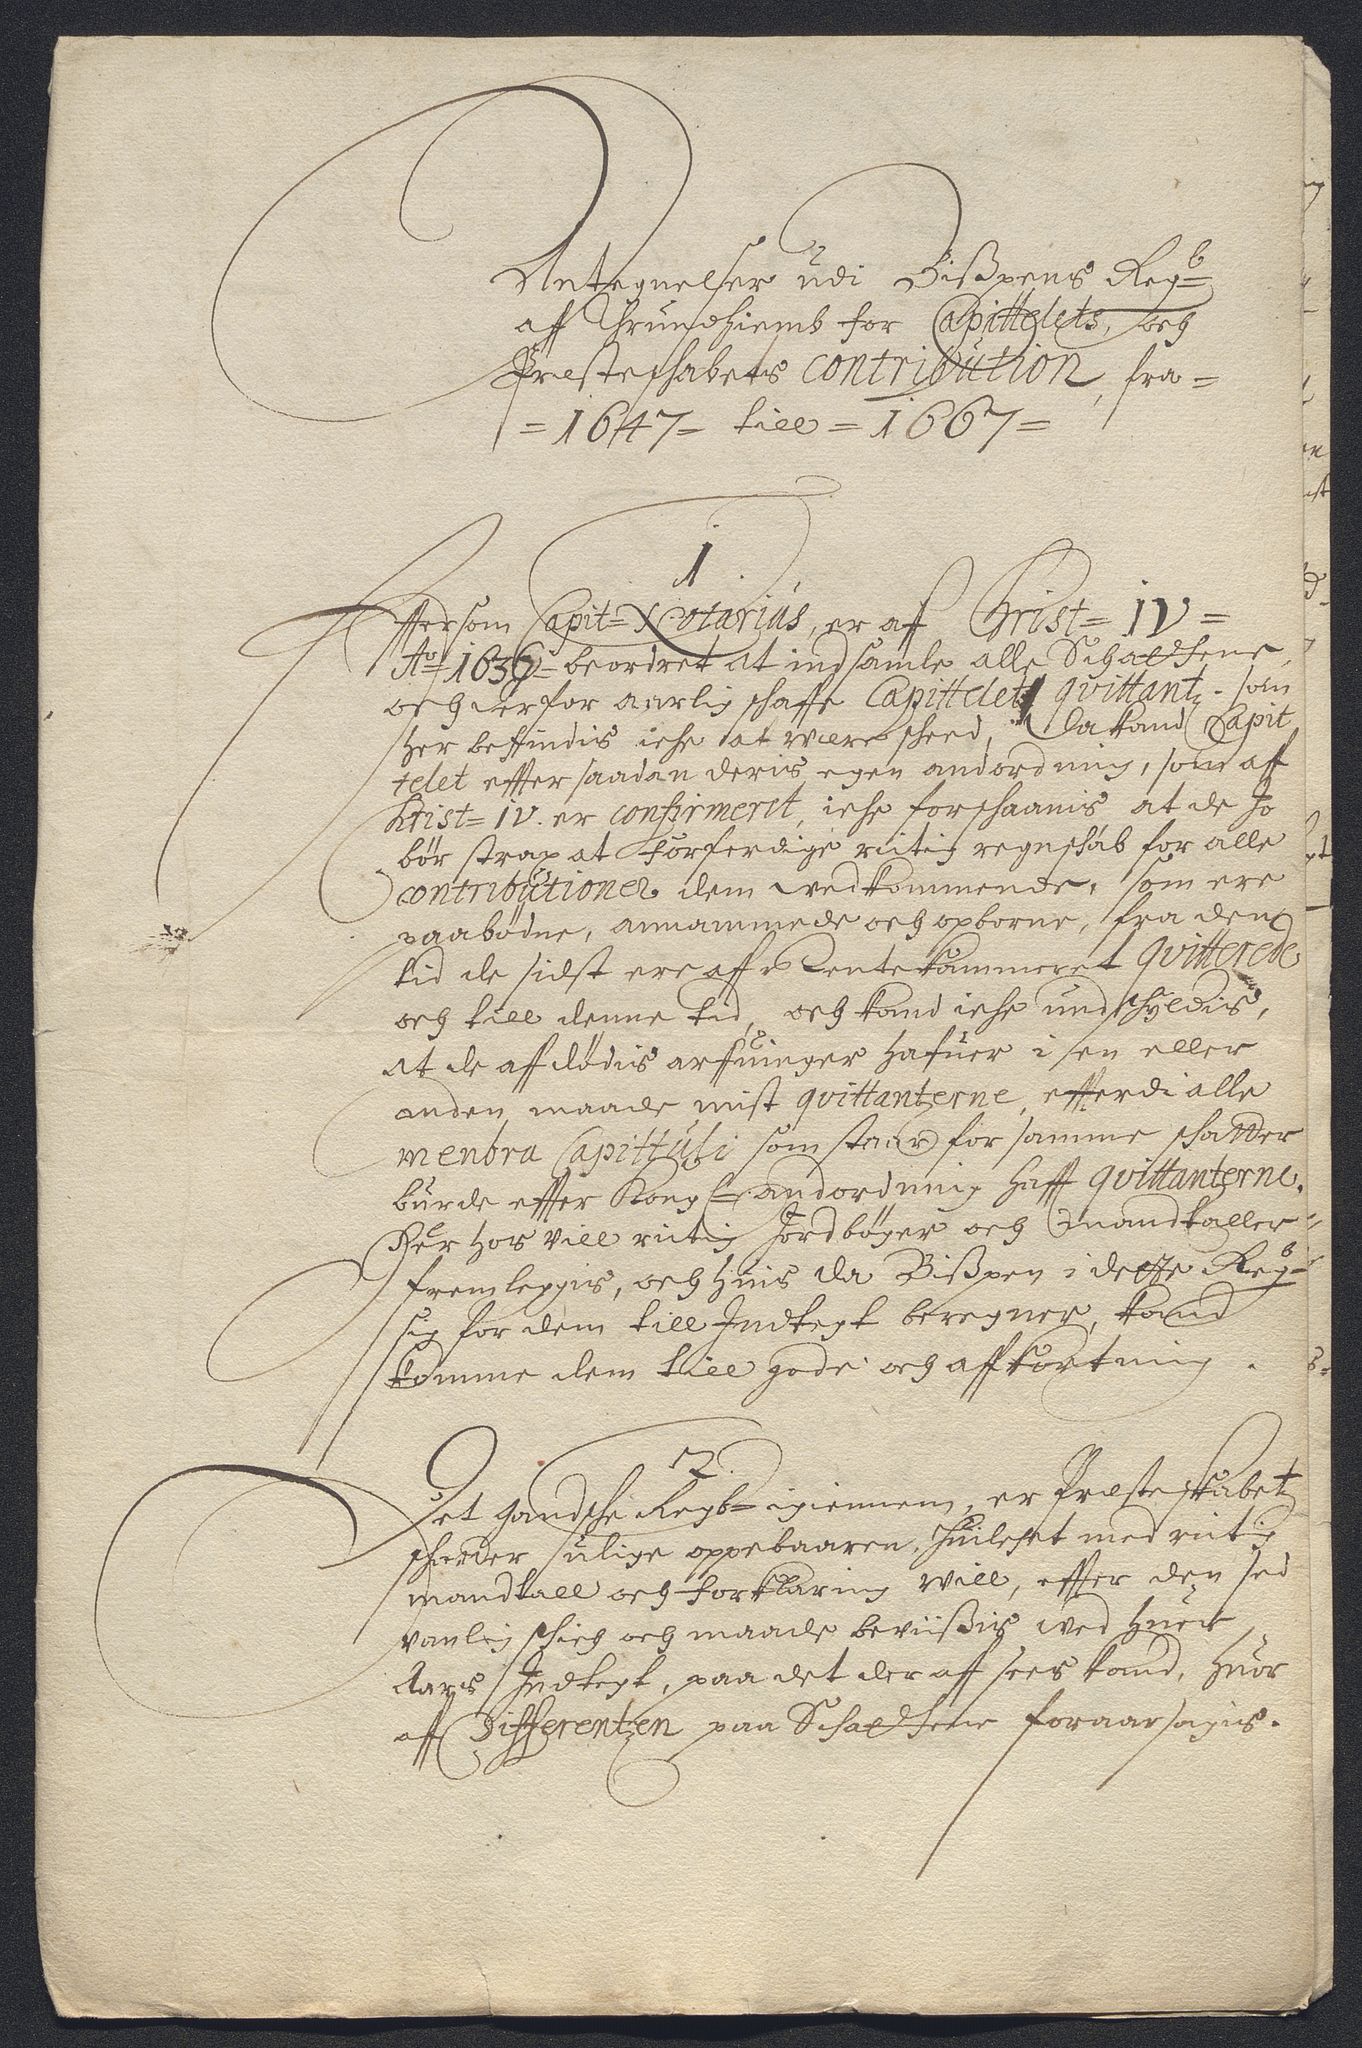 Antegnelser udi Bißpens Regb=
aff Thrundhiemb for Capittelets, och
Præsteschabets contribution, fra=
=1647= till =1667=
1
Effersom Capit= Notarius, er af Christ= IV=
Ao= 1636= beordret at indsamle alle Schattene,
och derfor aarlig schaffe Capittelets qvittantz. som
her beffindis iche at were scheed, Da kand Capit
telet effter saadan deris egen andordning, som aff
Christ= IV. er confirmeret, iche forschaanis at de Jo
bør strax at forferdige riitig regnschab for alle
contributioner dem wedkommende, som ere
paabødne, annammede och opborne, fra den
tid de sidst ere aff Rentekammeret qvitterede
och till denne tid, och kand iche undschyldis,
at de affdødis arffuinger hafuer i sen eller
anden maade mist qvittanterne, efferdi alle
menbra Capittuli som staar for samme schatter
burde effter Kongl= andordning hafft qvittanterne.
Her hos vill riitig Jordbøger och mandtaller
fremleggis, och huis da Bißpen i dette Regb=
sig for dem till Indtegt beregner, kand
komme dem till gode och affkortning.
2.
Det gandsche Regb= igiennem, er Præsteskabet
schatter ulige oppebaaren, Huilchet med riitig
mandtall och forklaring will, effter den sed
vanlig schich och maade beviißis wed huer
Aars Indtegt, paa det der aff sees kand, huor
aff Differentzen paa Schattene foraarsagis.